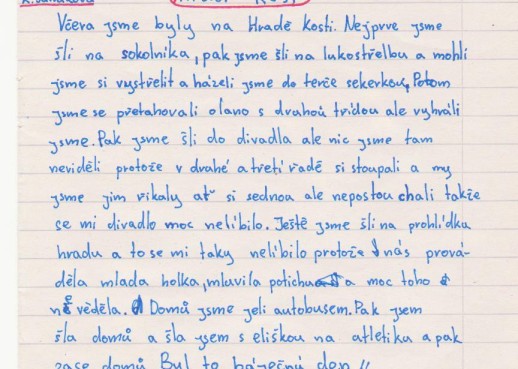 Včera jsme byly na Hradě Kosti. Nejprve jsme
šli na sokolníka, pak jsme šli na lukostřelbu a mohli
jsme si vystřelit a házeli jsme do terče sekerkou, Potom
jsme se přetahovali o lano s druhou třídou ale vyhráli
jsme. Pak jsme šli do divadla ale nic jsme tam
neviděli protože v druhé a třetí řadě si stoupali a my
jsme jim říkaly ať si sednou ale neposlouchali takže
se mi divadlo moc nelíbilo. Ještě jsme šli na prohlídku
hradu a to se mi taky nelíbilo protože nás prová-
děla mlada holka, mluvila potichu a moc toho
ne věděla. Domů jsme jeli autobusem. Pak jsem
šla domů a šla jsem s eliškou na atletiku a pak
zase domů Byl to báječný den!!